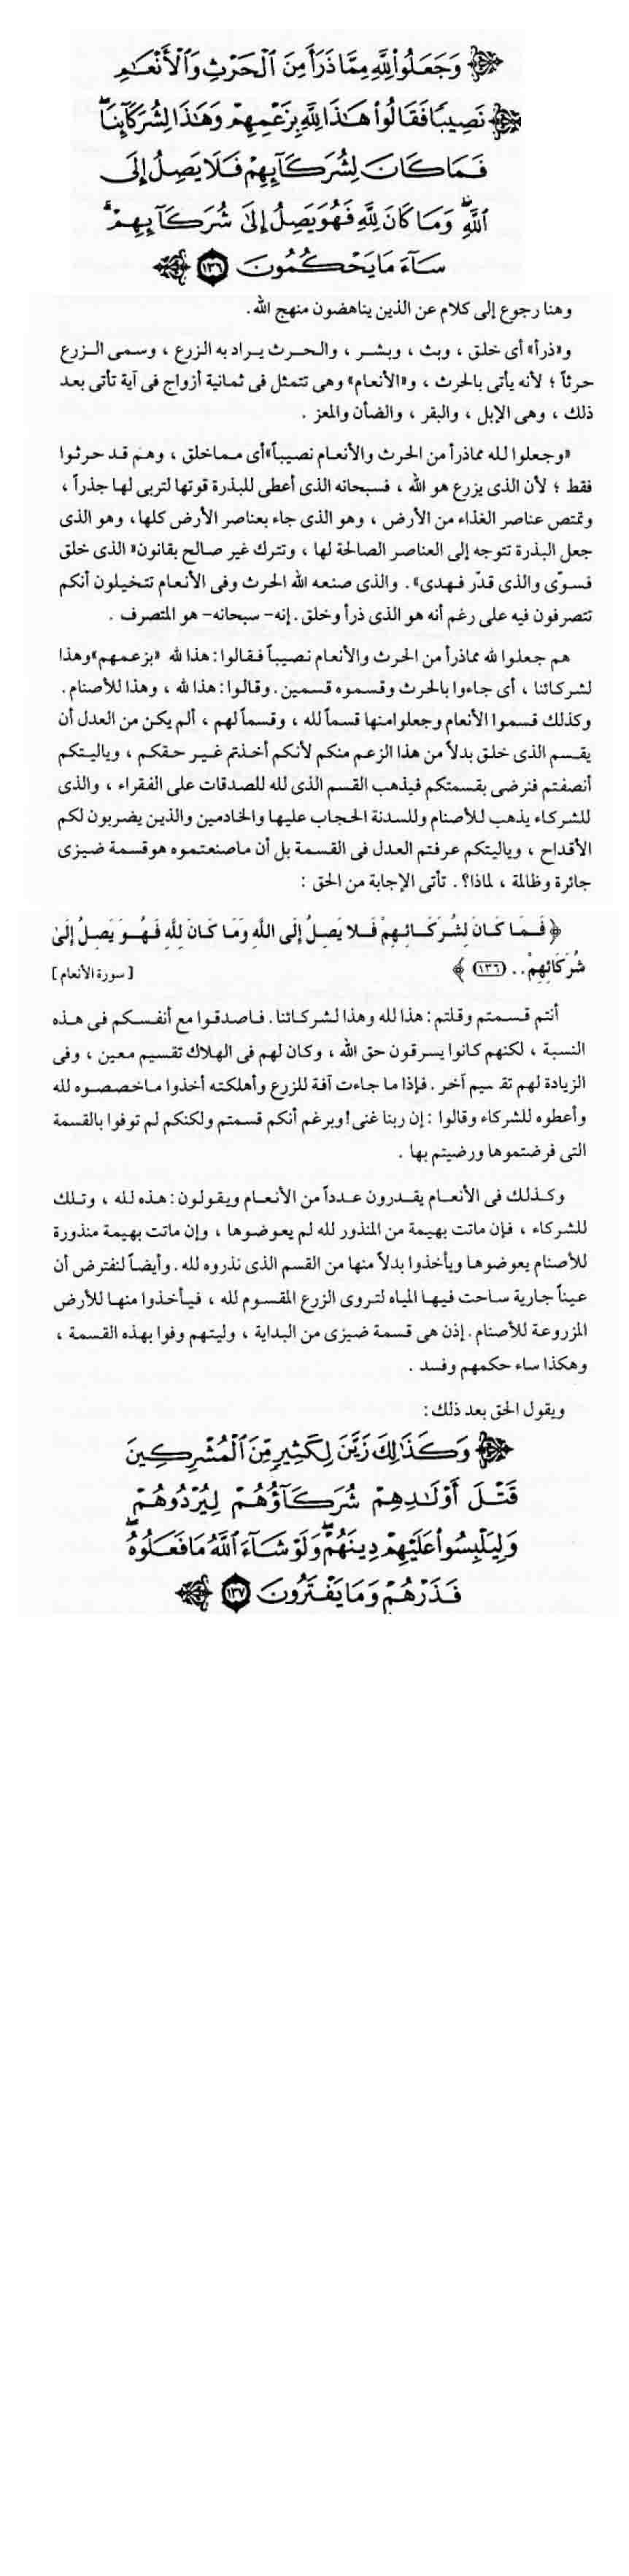 وَجَعَلُوا۟ لِلَّهِ مِمَّا ذَرَأَ مِنَ ٱلْحَرْثِ وَٱلْأَنْعَـٰمِ
نَصِيبًا فَقَالُوا۟ هَـٰذَا لِلَّهِ بِزَعْمِهِمْ وَهَـٰذَا لِشُرَكَآئِنَا ۖ
فَمَا كَانَ لِشُرَكَآئِهِمْ فَلَا يَصِلُ إِلَى
ٱللَّهِ ۖ وَمَا كَانَ لِلَّهِ فَهُوَ يَصِلُ إِلَىٰ شُرَكَآئِهِمْ ۗ
سَآءَ مَا يَحْكُمُونَ ١٣٦
وهنا رجوع إلى كلام عن الذين يناهضون منهج الله.
و«ذرأ» أى خلق ، وبث ، وبشر ، والحرث يراد به الزرع ، وسمى الزرع
حرثاً ؛ لأنه يأتى بالحرث ، و«الأنعام» وهى تتمثل فى ثمانية أزواج فى آية تأتى بعد
ذلك ، وهى الإبل ، والبقر ، والضأن والمعز .
«وجعلوا لله مماذرأ من الحرث والأنعام نصيباً» أى مماخلق ، وهم قد حرثوا
فقط ؛ لأن الذى يزرع هو الله ، فسبحانه الذى أعطى للبذرة قوتها لتربى لها جذراً ،
وتمتص عناصر الغذاء من الأرض ، وهو الذى جاء بعناصر الأرض كلها، وهو الذى
جعل البذرة تتوجه إلى العناصر الصالحة لها ، وتترك غير صالح بقانون« الذى خلق
فسوّى والذى قدّر فهدى». والذى صنعه الله الحرث وفى الأنعام تتخيلون أنكم
تتصرفون فيه على رغم أنه هو الذى ذرأ وخلق . إنه- سبحانه- هو المتصرف .
هم جعلوا لله مماذرأ من الحرث والأنعام نصيباً فقالوا: هذا لله «بزعمهم»وهذا
لشركائنا ، أى جاءوا بالحرث وقسموه قسمين . وقالوا: هذا لله ، وهذا للأصنام .
وكذلك قسموا الأنعام وجعلوامنها قسماً لله ، وقسماً لهم ، ألم يكن من العدل أن
يقسم الذى خلق بدلاً من هذا الزعم منكم لأنكم أخذتم غير حقكم ، وياليتكم
أنصفتم فنرضى بقسمتكم فيذهب القسم الذى لله للصدقات على الفقراء ، والذى
للشركاء يذهب للأصنام وللسدنة الحجاب عليها والخادمين والذين يضربون لكم
الأقداح ، وياليتكم عرفتم العدل فى القسمة بل أن ماصنعتموه هوقسمة ضيزى
جائرة وظالمة ، لماذا؟. تأتى الإجابة من الحق :
﴿ فَمَا كَانَ لِشُرَكَائِهِمْ فَلا يَصِلُ إِلَى اللَّهِ وَمَا كَانَ لِلَّهِ فَهُوَ يَصِلُ إِلَىٰ
شُرَكَائِهِمْ.. (١٣٦) ﴾ [ سورة الأنعام ]
أنتم قسمتم وقلتم : هذا لله وهذا لشركائنا. فاصدقوا مع أنفسكم فى هذه
النسبة ، لكنهم كانوا يسرقون حق الله ، وكان لهم فى الهلاك تقسيم معين ، وفى
الزيادة لهم تقسيم آخر . فإذا ما جاءت آفة للزرع وأهلكته أخذوا ماخصصوه لله
وأعطوه للشركاء وقالوا : إن ربنا غنى! وبرغم أنكم قسمتم ولكنكم لم توفوا بالقسمة
التى فرضتموها ورضيتم بها .
وكذلك فى الأنعام يقدرون عدداً من الأنعام ويقولون: هذه لله ، وتلك
للشركاء ، فإن ماتت بهيمة من المنذور لله لم يعوضوها ، وإن ماتت بهيمة منذورة
للأصنام يعوضوها ويأخذوا بدلاً منها من القسم الذى نذروه لله . وأيضاً لنفترض أن
عيناً جارية ساحت فيها المياه لتروى الزرع المقسوم لله ، فيأخذوا منها للأرض
المزروعة للأصنام . إذن هى قسمة ضيزى من البداية ، وليتهم وفوا بهذه القسمة ،
وهكذا ساء حكمهم وفسد .
ويقول الحق بعد ذلك :
وَكَذَٰلِكَ زَيَّنَ لِكَثِيرٍ مِّنَ ٱلْمُشْرِكِينَ
قَتْلَ أَوْلَـٰدِهِمْ شُرَكَآؤُهُمْ لِيُرْدُوهُمْ
وَلِيَلْبِسُوا۟ عَلَيْهِمْ دِينَهُمْ ۖ وَلَوْ شَآءَ ٱللَّهُ مَا فَعَلُوهُ ۖ
فَذَرْهُمْ وَمَا يَفْتَرُونَ ١٣٧